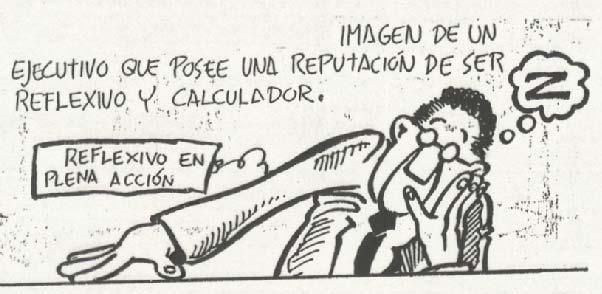 IMAGEN DE UN
EJECUTIVO QUE POSEE UNA REPUTACIÓN DE SER
REFLEXIVO Y CALCULADOR.
Z
REFLEXIVO EN
PLENA ACCIÓN